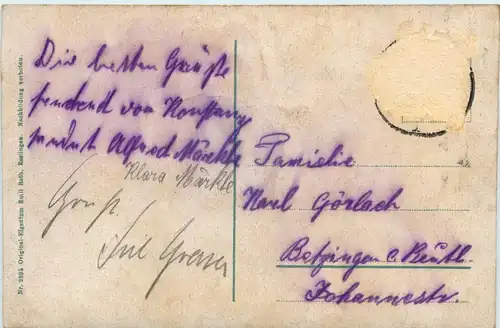 Die besten Grüße
sendend von Konstanz
sendet Alfred Märkle
Klara Märkle
Gruß.
Familie
Karl Görlach
Betzingen b. Reutl.
Johannestr.
Nr. 2924 Original-Eigentum Emil Roth, Reutlingen. Nachbildung verboten.